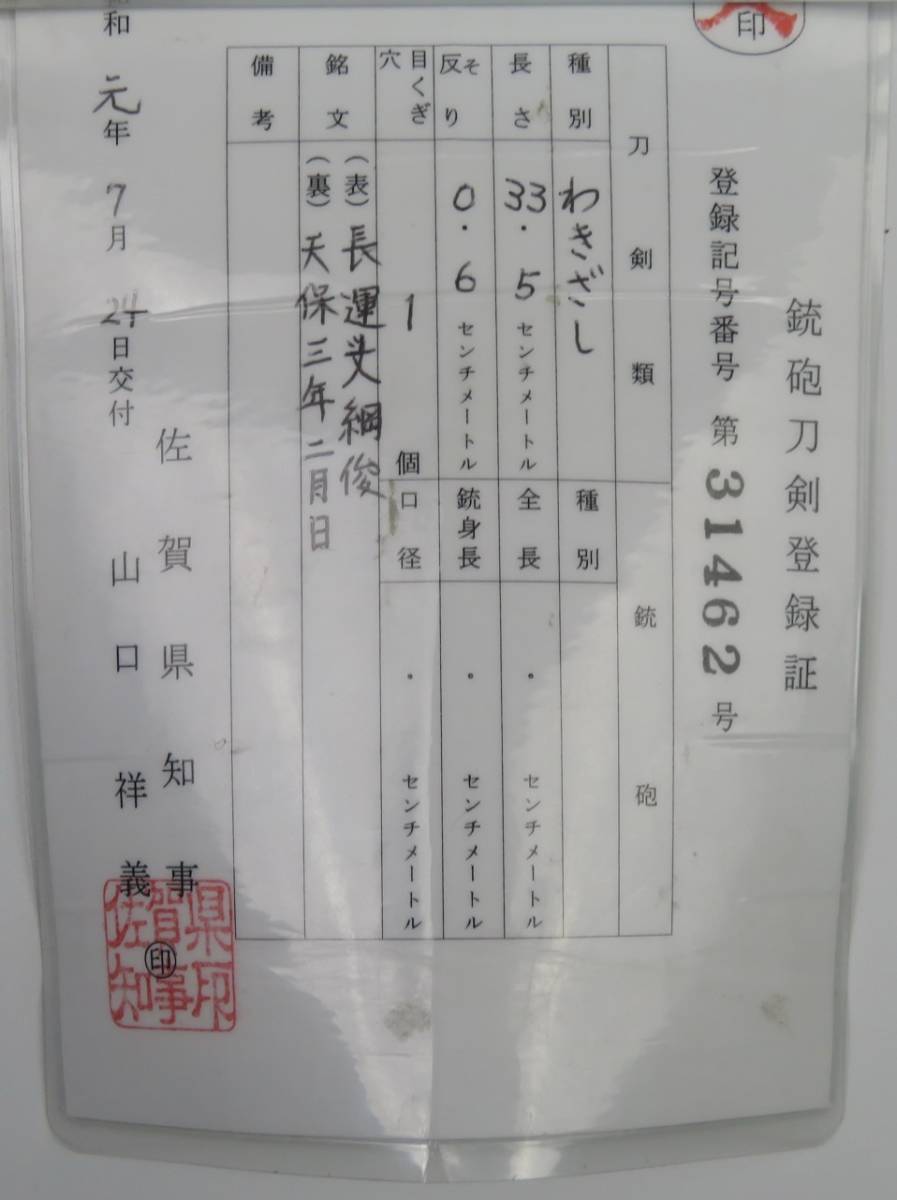 印
銃砲刀剣登録証
登録記号番号 第31462号
刀剣類
種別 わきざし
長さ 33.5センチメートル
反そり 0.6センチメートル
目くぎ穴 1個
銘文 (表)長運斎綱俊
(裏)天保三年二月日
備考
銃砲
種別
全長 ・センチメートル
銃身長 ・センチメートル
口径 ・センチメートル
和元年7月24日交付
佐賀県知事
山口祥義
印
佐賀県知事印